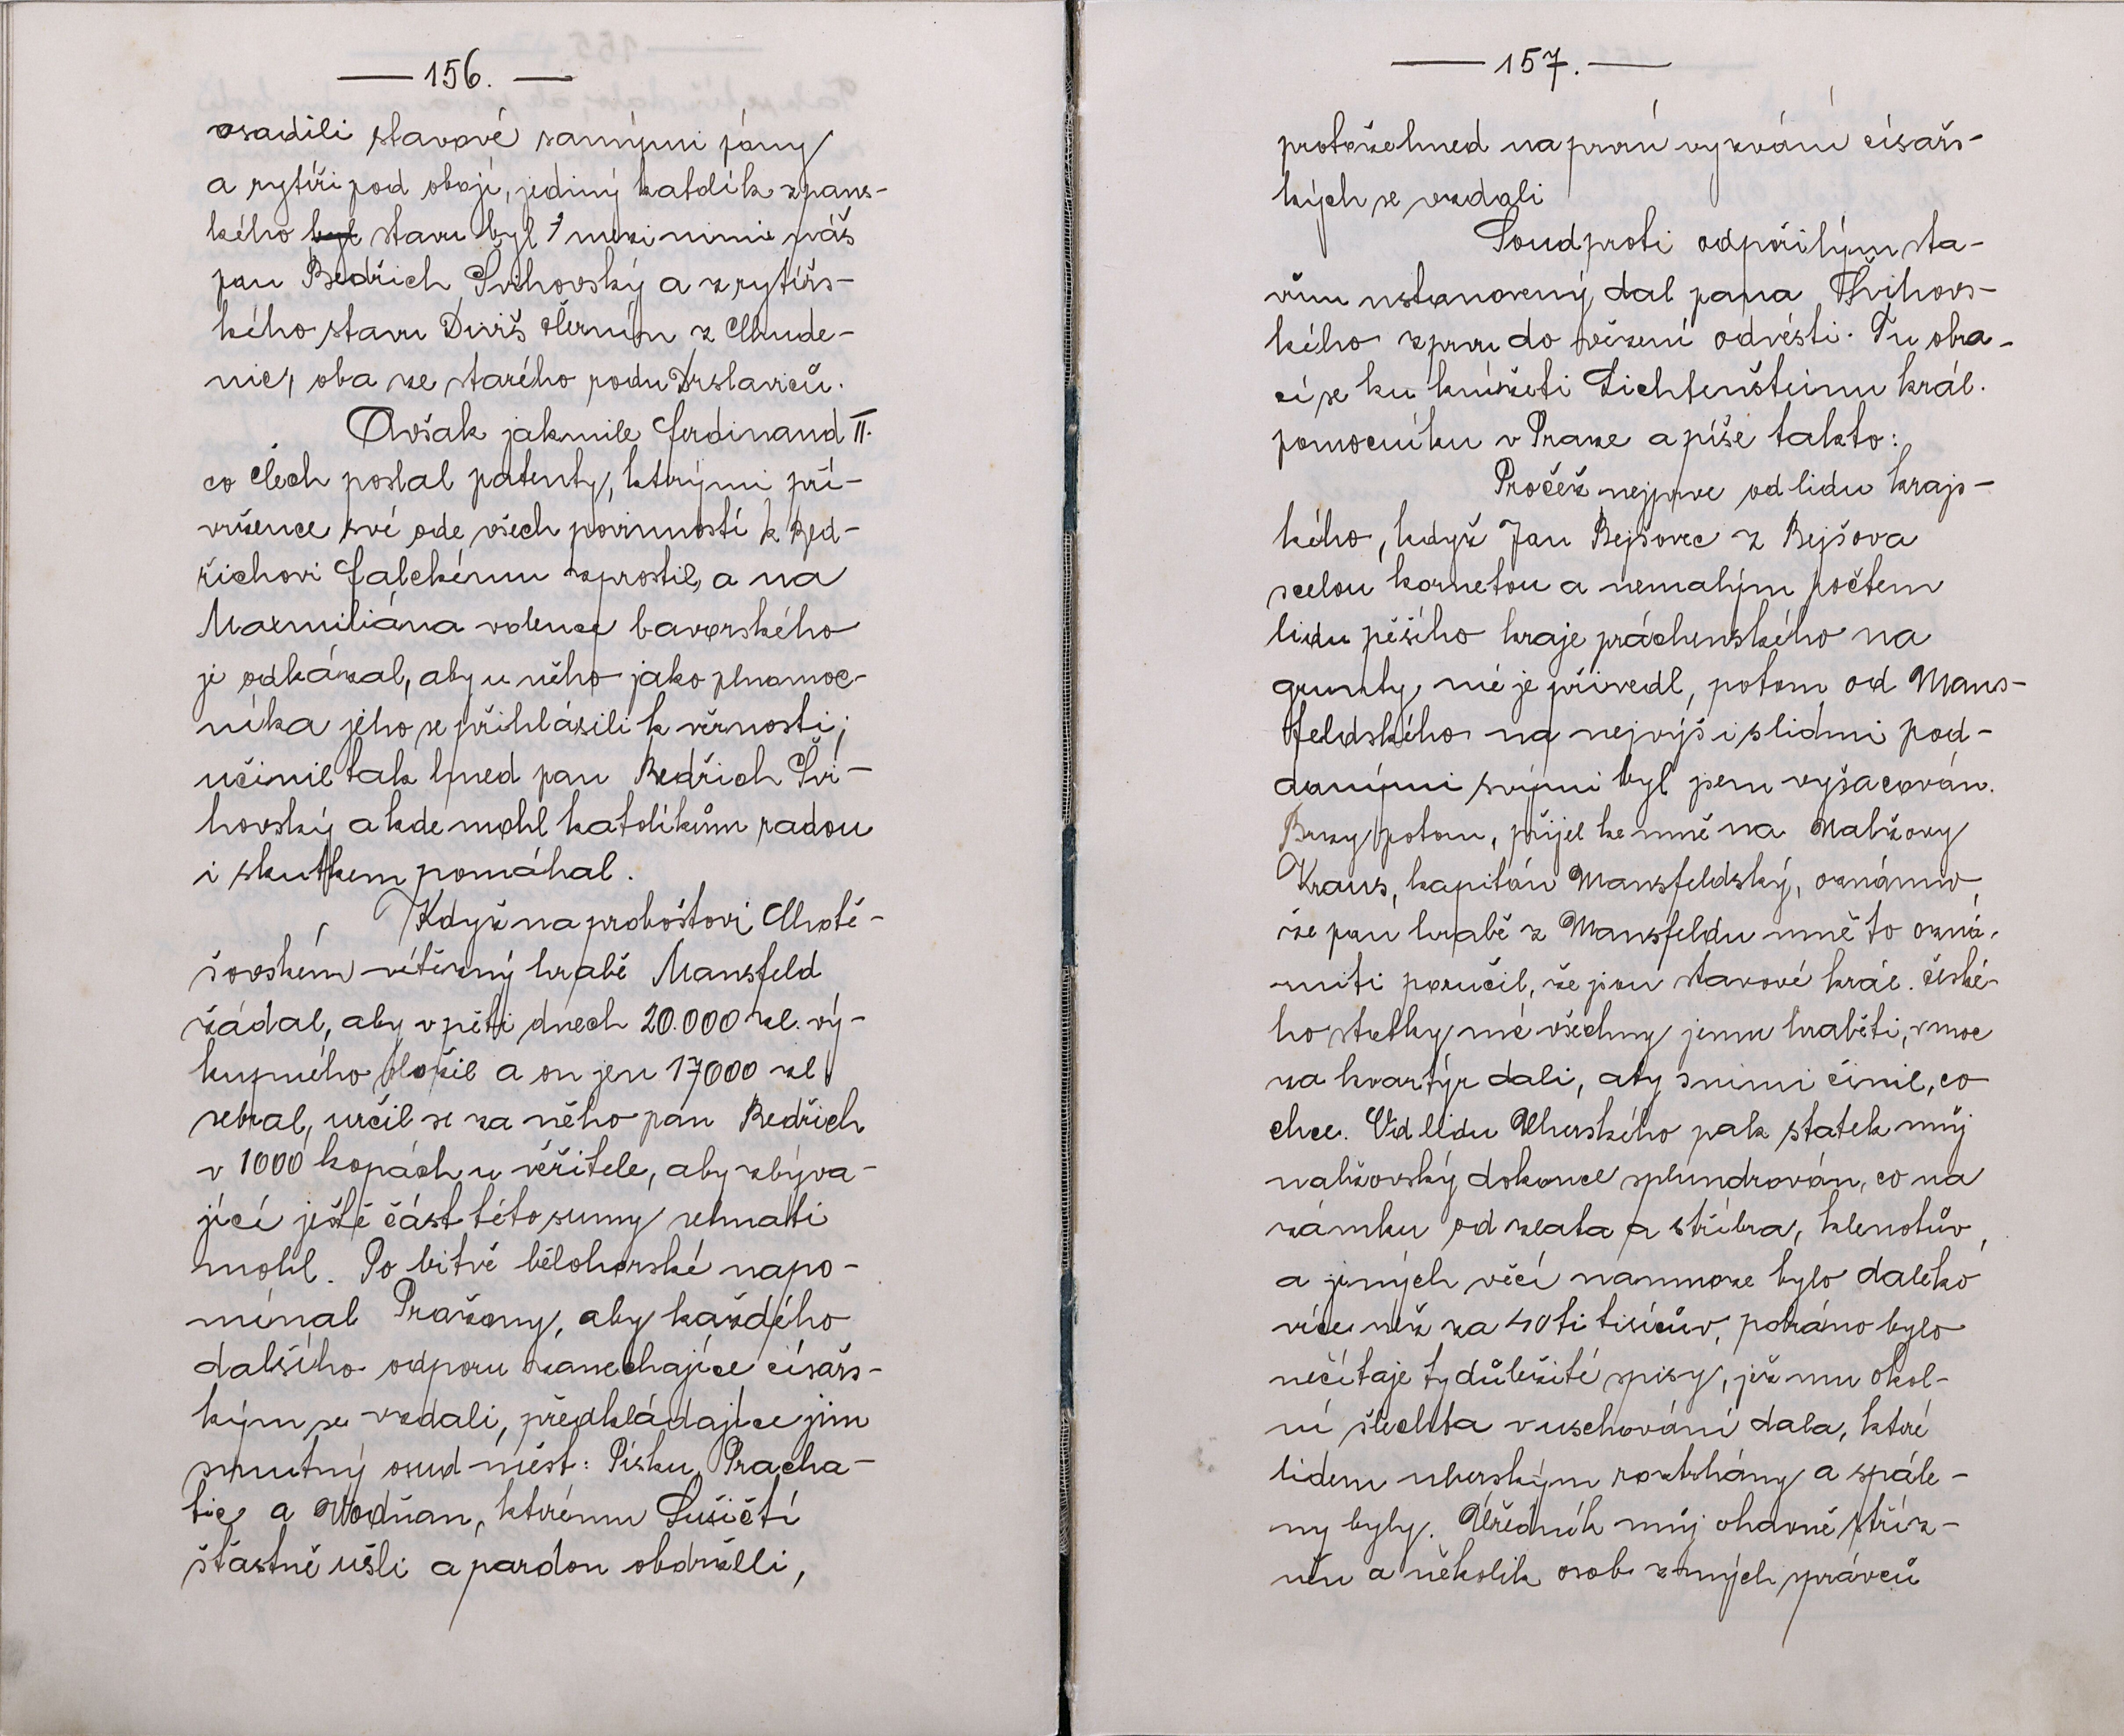 — 156. —
osadili stavové samými pány
a rytíři pod obojí, jediný katolík z pans-
kého byl stavu byl 1 mezi nimi náš
pan Bedřich Švihovský a z rytířs-
kého stavu Diviš Černín z Chude-
nic, oba ze starého rodu Drslaviců.
Avšak jakmile Ferdinand II.
co Čech poslal patenty, kterými pří-
vržence své ode všech povinností k Bed-
řichovi falckému zprostil, a na
Maxmiliána vdence bavorského
je odkázal, aby u něho jako plnomoc-
níka jeho se přihlásili k věrnosti;
učinil tak hned pan Bedřich Švi-
hovský a kde mohl katolíkům radou
i skutkem pomáhal.
Když na proboštovi Chotě-
šovském vítězný hrabě Mansfeld
žádal, aby v pěti dnech 20.000 zl. vý-
kupného složil a on jen 17000 zl
sebral, určil se za něho pan Bedřich
v 1000 kopách u věřitele, aby zbýva-
jící ještě část této sumy sehnati
mohl. Po bitvě bělohorské napo-
mínal Pražany, aby každého
dalšího odporu zanechajíce císařs-
kým se vzdali, předkládajíce jim
smutný osud měst: Písku, Pracha-
tic a Vodňan, kterému Sušičtí
šťastně ušli a pardon obdrželi,
— 157. —
protože hned na první vyzvání císařs-
kých se vzdali
Soud proti odpŕilým sta-
vům ustanovený, dal pana Švihovs-
kého zprvu do vězení odvésti. Tu obra-
cí se ku knížeti Lichtenšteinu král.
pomocníku v Praze a píše takto:
Pročež nejprve od lidu krajs-
kého, když Jan Bejšovec z Bejšova
s celou kornetou a nemalým počtem
lidu pěšího kraje práchenského na
grunty mé je přivedl, potom od Mans-
feldského na nejvýš i s lidmi pod-
danými svými byl jsem vyšacován.
Brzy potom, přijel ke mně na Nalžovy
Kraus, kapitán Mansfeldský, oznámiv,
že pan hrabě z Mansfeldu mně to ozná-
miti poručil, že jsou stavové král. české-
ho statky mé všechny jemu hraběti, v moc
za kvartýr dali, aby s nimi činil, co
chce. Od lidu Uherského pak statek můj
nalžovský dokonce splundrován, co na
zámku od zlata a stříbra, klenotův,
a jiných věcí nanmoze bylo daleko
více než za 40ti tisícův, pobráno bylo
nečítaje ty důležité spisy, jež mu okol-
ní šlechta v uschování dala, které
lidem uherským roztrhány a spále-
ny byly. Úředník můj ohavně stříz-
něn a několik osob z mých správců